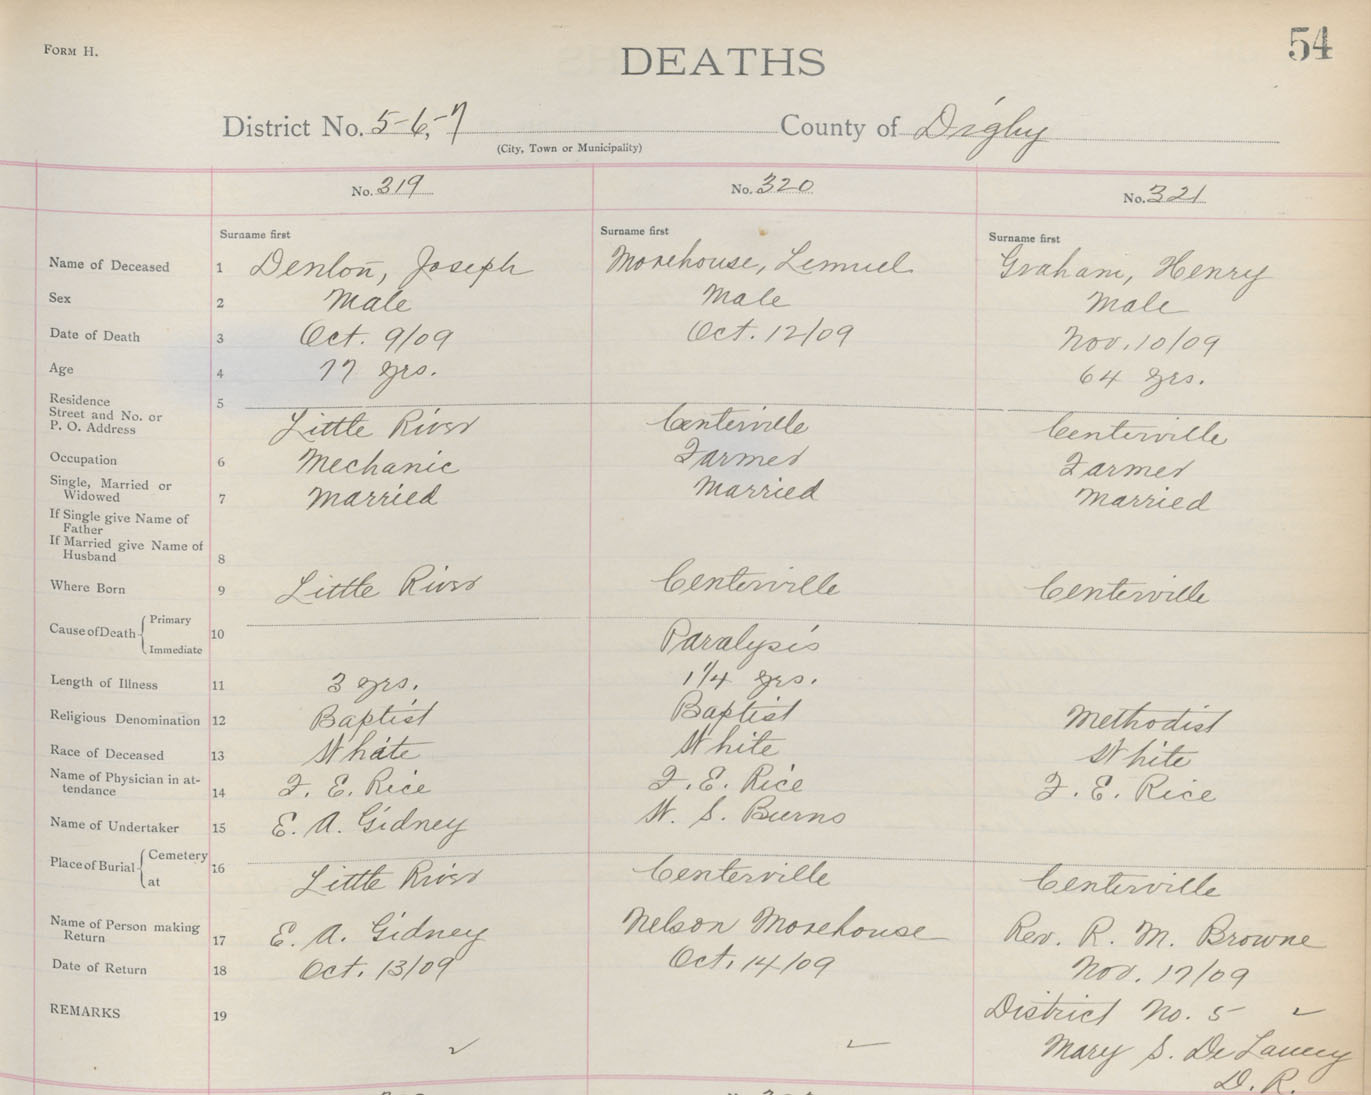 FORM H.
54
DEATHS
District No. 5-6,-7 County of Digby
(City, Town or Municipality)
No. 319 No. 320 No. 321
Surname first Surname first Surname first
Name of Deceased 1 Denlon, Joseph Morehouse, Lemuel Graham, Henry
Sex 2 Male Male Male
Date of Death 3 Oct. 9/09 Oct. 12/09 Nov. 10/09
Age 4 77 yrs. 64 yrs.
Residence
Street and No. or
P. O. Address 5 Little River Centerville Centerville
Occupation 6 Mechanic Farmer Farmer
Single, Married or
Widowed 7 Married Married Married
If Single give Name of
Father
If Married give Name of
Husband 8
Where Born 9 Little River Centerville Centerville
Cause of Death Primary
Immediate 10 Paralysis
Length of Illness 11 3 yrs. 1 1/4 yrs.
Religious Denomination 12 Baptist Baptist Methodist
Race of Deceased 13 White White White
Name of Physician in at-
tendance 14 F. E. Rice F. E. Rice F. E. Rice
Name of Undertaker 15 E. A. Gidney W. S. Burns
Place of Burial Cemetery
at 16 Little River Centerville Centerville
Name of Person making
Return 17 E. A. Gidney Nelson Morehouse Rev. R. M. Browne
Date of Return 18 Oct. 13/09 Oct. 14/09 Nov. 17/09
REMARKS 19 District No. 5 ✓
✓ ✓ Mary S. De Lancey
D. R.